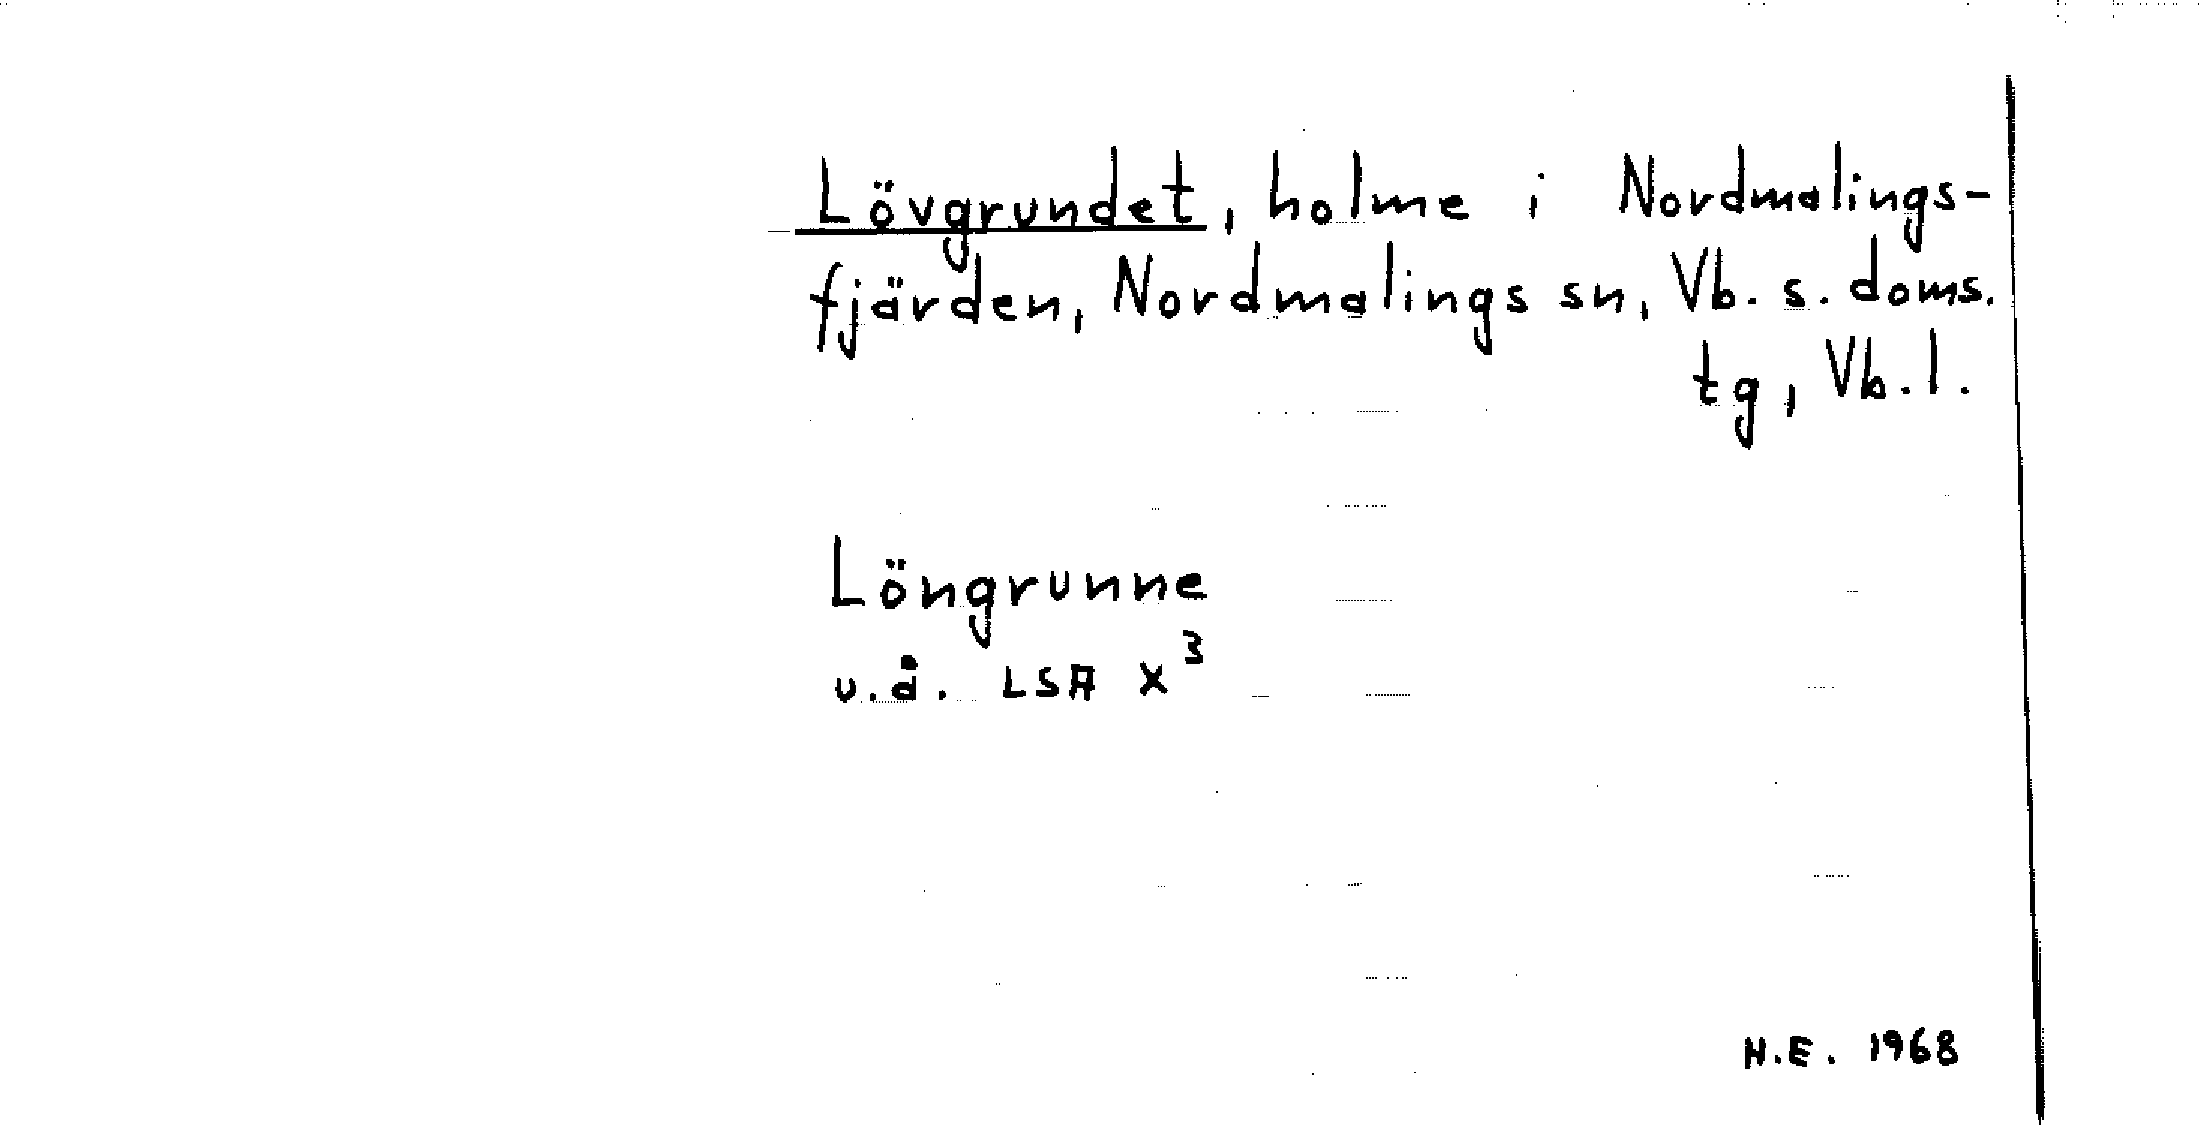 Lövgrundet, holme i Nordmalings-
fjärden, Nordmalings sn, Vb. s. doms.
tg, Vb. l.
Löngrunne
u.å. LSA X³
H.E. 1968